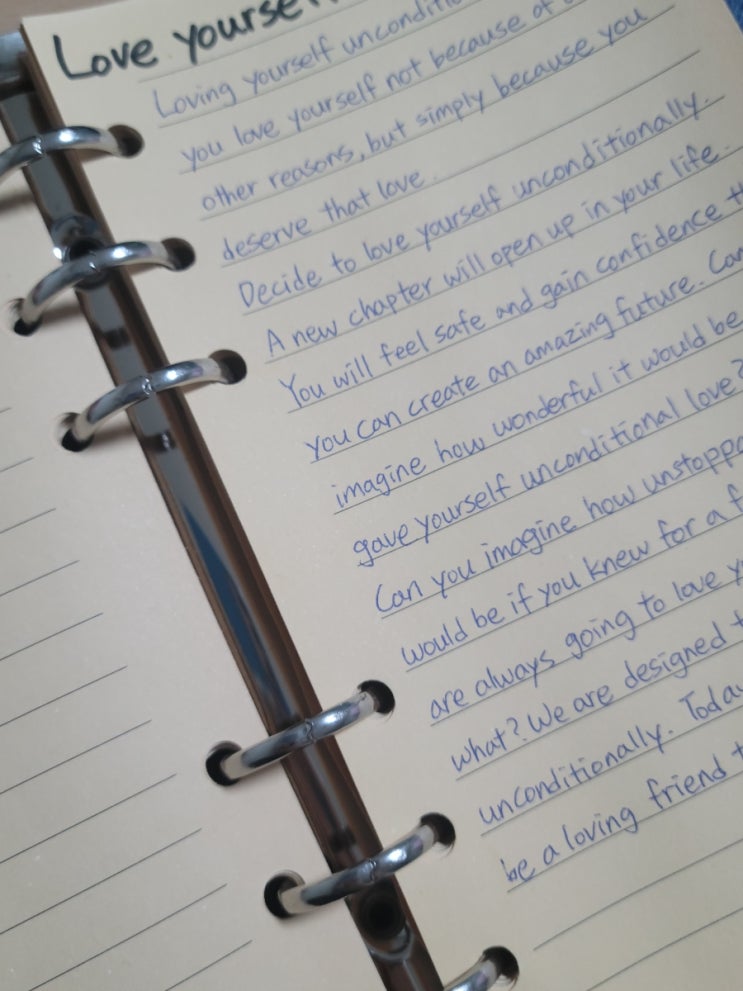 Love yourself
Loving yourself
you love yourself not because of
other reasons, but simply because you
deserve that love.
Decide to love yourself unconditionally.
A new chapter will open up in your life.
You will feel safe and gain confidence
you can create an amazing future.
imagine how wonderful it would be
gave yourself unconditional love?
Can you imagine how
would be if you knew for a
are always going to love
what? We are designed
unconditionally.
be a loving friend